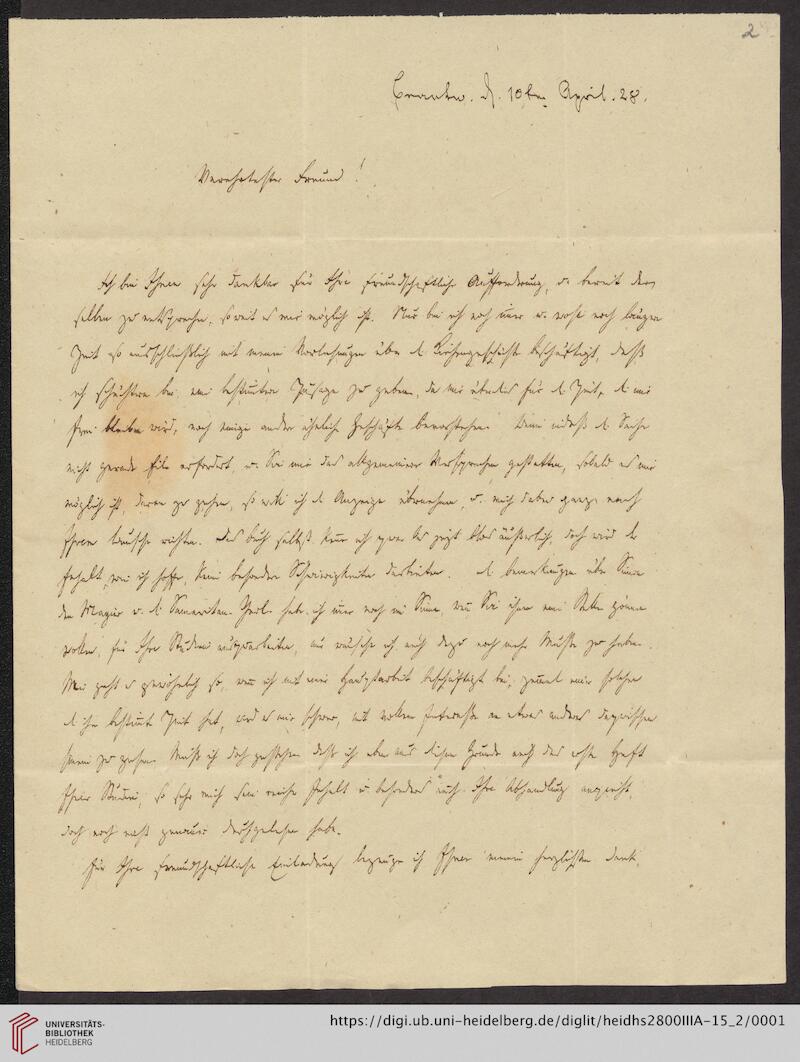 2
d. 10ten April. 28.
Verehrtester Freund!
Ich bin Ihnen sehr dankbar für Ihre freundschaftliche Aufforderung, u. bereit der-
selben zu entsprechen, soweit es mir möglich ist. Nur bin ich noch immer u. wohl noch längere
Zeit so ausschließlich mit meinen Vorlesungen über d. Kirchengeschichte beschäftigt, daß
ich schüchtern bin, eine bestimmtere Zusage zu geben, da mir überdies für d. Zeit, d. mir
frei bleiben wird, noch einige andere ähnliche Geschäfte bevorstehen. Wenn indeß d. Sache
nicht gerade Eile erfordert, u. Sie mir das allgemeinere Versprechen gestatten, sobald es mir
möglich ist, daran zu gehen, so will ich d. Anzeige übernehmen, u. mich dabei ganz nach
Ihrem Wunsche richten. Das Buch selbst kenne ich zwar bis jetzt blos äußerlich, doch wird der
Inhalt, wie ich hoffe, keine besondere Schwierigkeiten darbieten. d. Bemerkungen über Simon
den Magier u. d. Samaritan. habe ich immer noch im Sinne, wenn Sie ihnen eine Stelle gönnen
wollen, für Ihre Studien auszuarbeiten, nur wünsche ich auch dazu noch mehr Muße zu haben.
Mir geht es gewöhnlich so, wenn ich mit einer Hauptarbeit beschäftigt bin, zumal einer solchen
d. ihre bestimmte Zeit hat, wird es mir schwer, mit vollem Interesse an etwas anderes dazwischen
hinein zu gehen. Muß ich doch gestehen daß ich eben aus diesem Grunde auch das erste Heft
Ihrer Studien, so sehr mich sein reicher Inhalt u. besonders auch Ihre Abhandlung anzieht,
doch noch nicht genauer durchgelesen habe.
Für Ihre freundschaftliche Einladung bezeuge ich Ihnen meinen herzlichsten Dank.
UNIVERSITÄTS-
BIBLIOTHEK
HEIDELBERG
https://digi.ub.uni-heidelberg.de/diglit/heidhs2800IIIA-15_2/0001